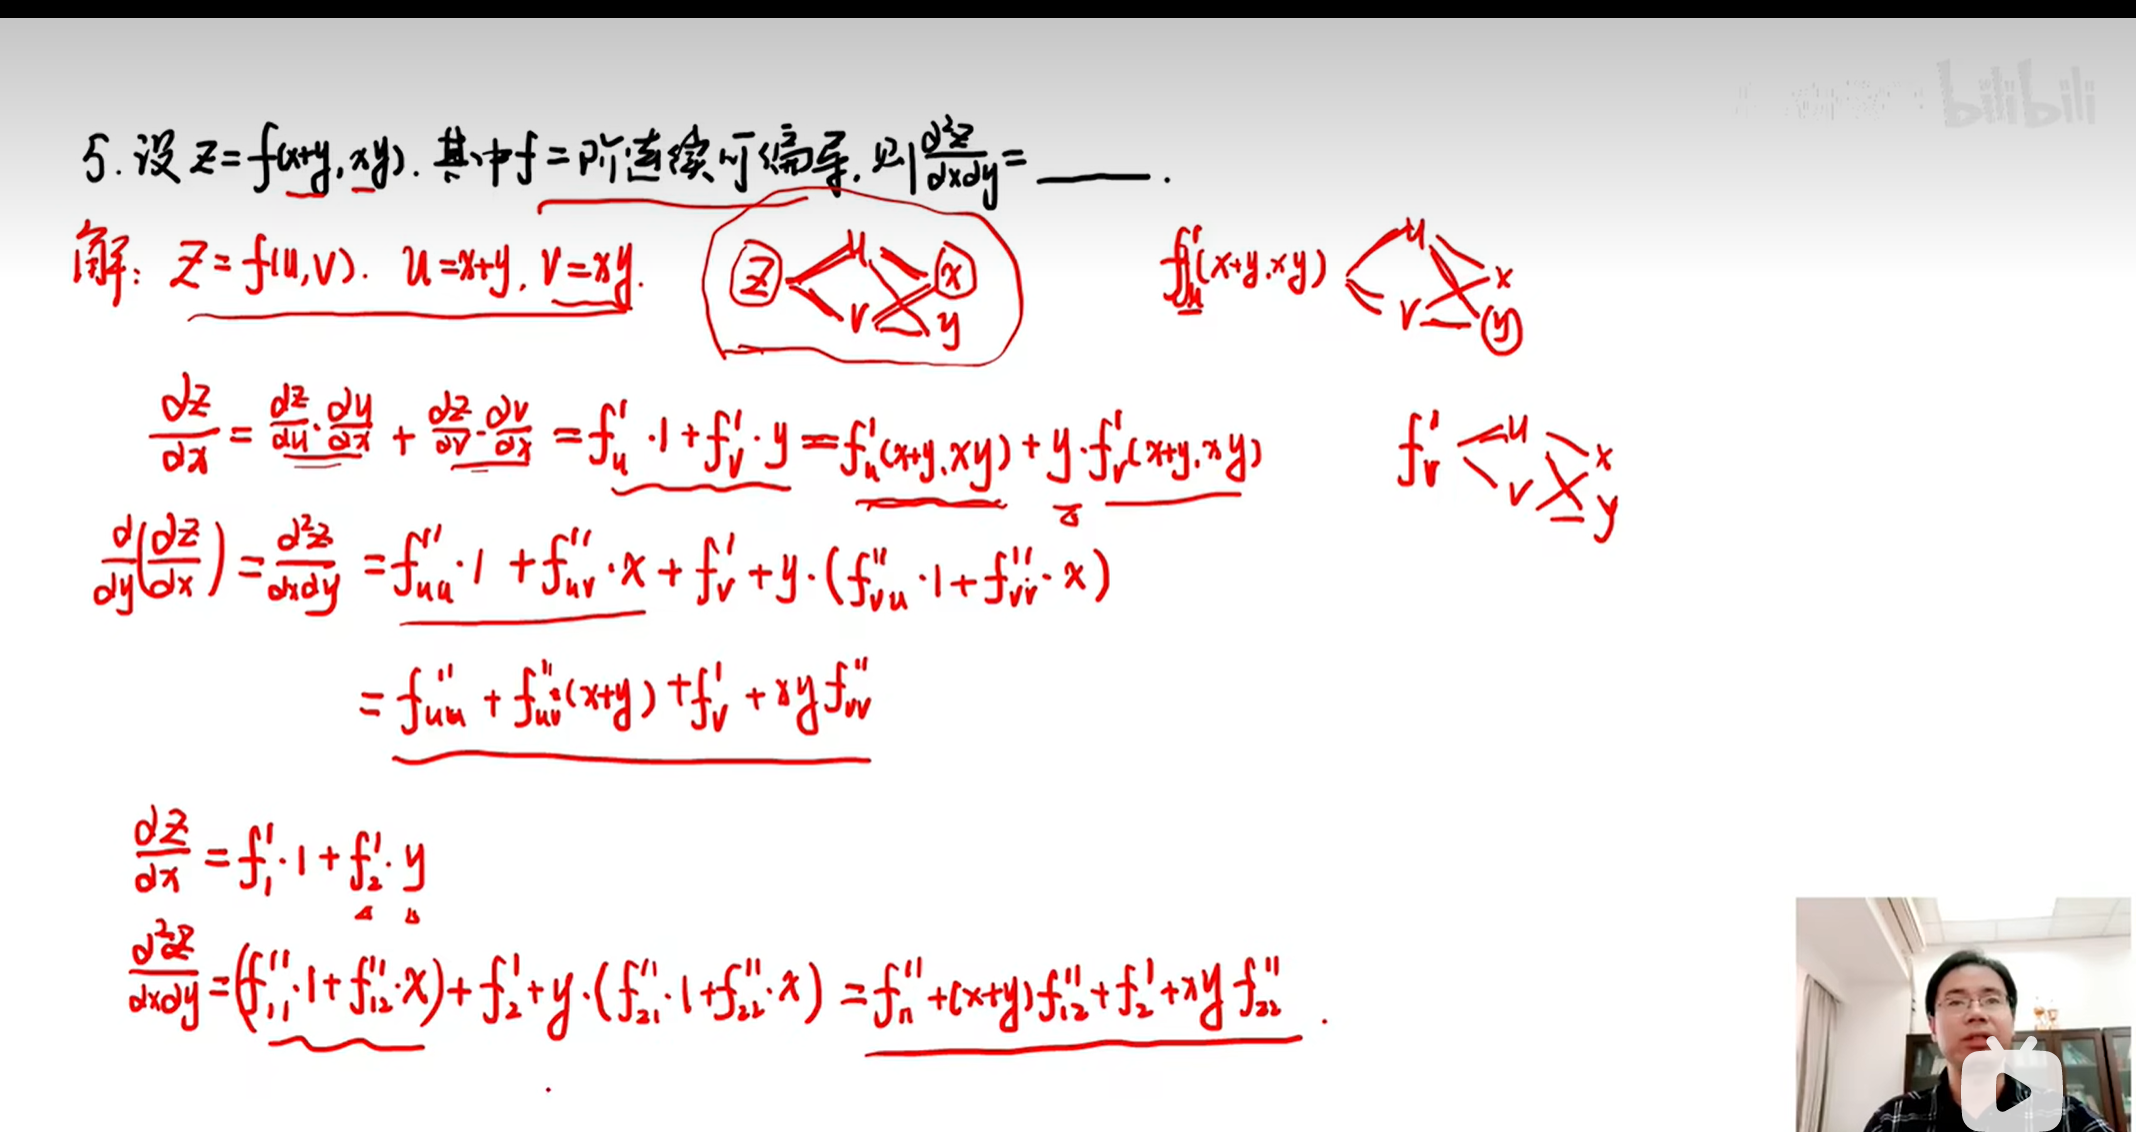 bilibili
5. 设 z = f(x+y, xy). 其中 f 二阶连续可偏导, 则 ∂²z/∂x∂y = ____.
解: z = f(u,v). u = x+y, v = xy.
z u v x y
f'u(x+y, xy) u v x y
∂z/∂x = ∂z/∂u · ∂u/∂x + ∂z/∂v · ∂v/∂x = f'u · 1 + f'v · y = f'u(x+y, xy) + y · f'v(x+y, xy)
f'v u v x y
∂/∂y(∂z/∂x) = ∂²z/∂x∂y = f''uu · 1 + f''uv · x + f'v + y · (f''vu · 1 + f''vv · x)
= f''uu + f''uv · (x+y) + f'v + xy f''vv
∂z/∂x = f'1 · 1 + f'2 · y
∂²z/∂x∂y = (f''11 · 1 + f''12 · x) + f'2 + y · (f''21 · 1 + f''22 · x) = f''11 + (x+y) f''12 + f'2 + xy f''22.